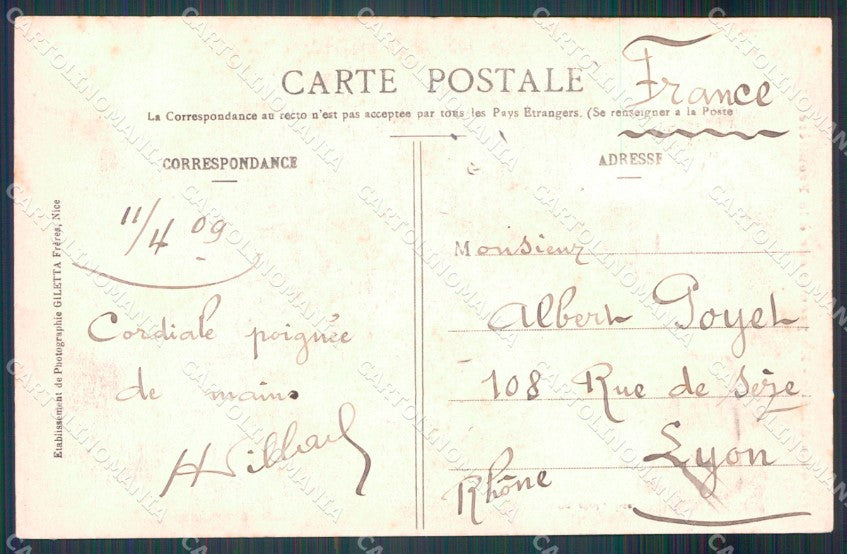 CARTE POSTALE
France
La Correspondance au recto n'est pas acceptee par tous les Pays Étrangers. (Se renseigner a la Poste
CORRESPONDANCE
ADRESSE
11/4 09
Cordiale poignée
de main.
Monsieur
Albert Poyet
108 Rue de Sèze
Lyon
Rhône
Etablissement de Photographie GILETTA Fréres, Nice
CARTOLINOMANIA